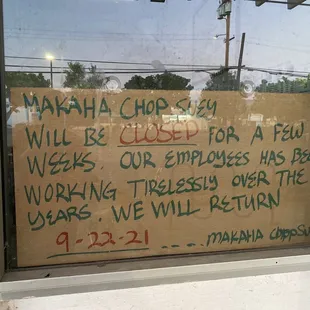 MAKAHA CHOP SUEY
WILL BE CLOSED FOR A FEW
WEEKS. OUR EMPLOYEES HAS BE
WORKING TIRELESSLY OVER THE
YEARS. WE WILL RETURN
9-22-21 .... MAKAHA CHOP SU